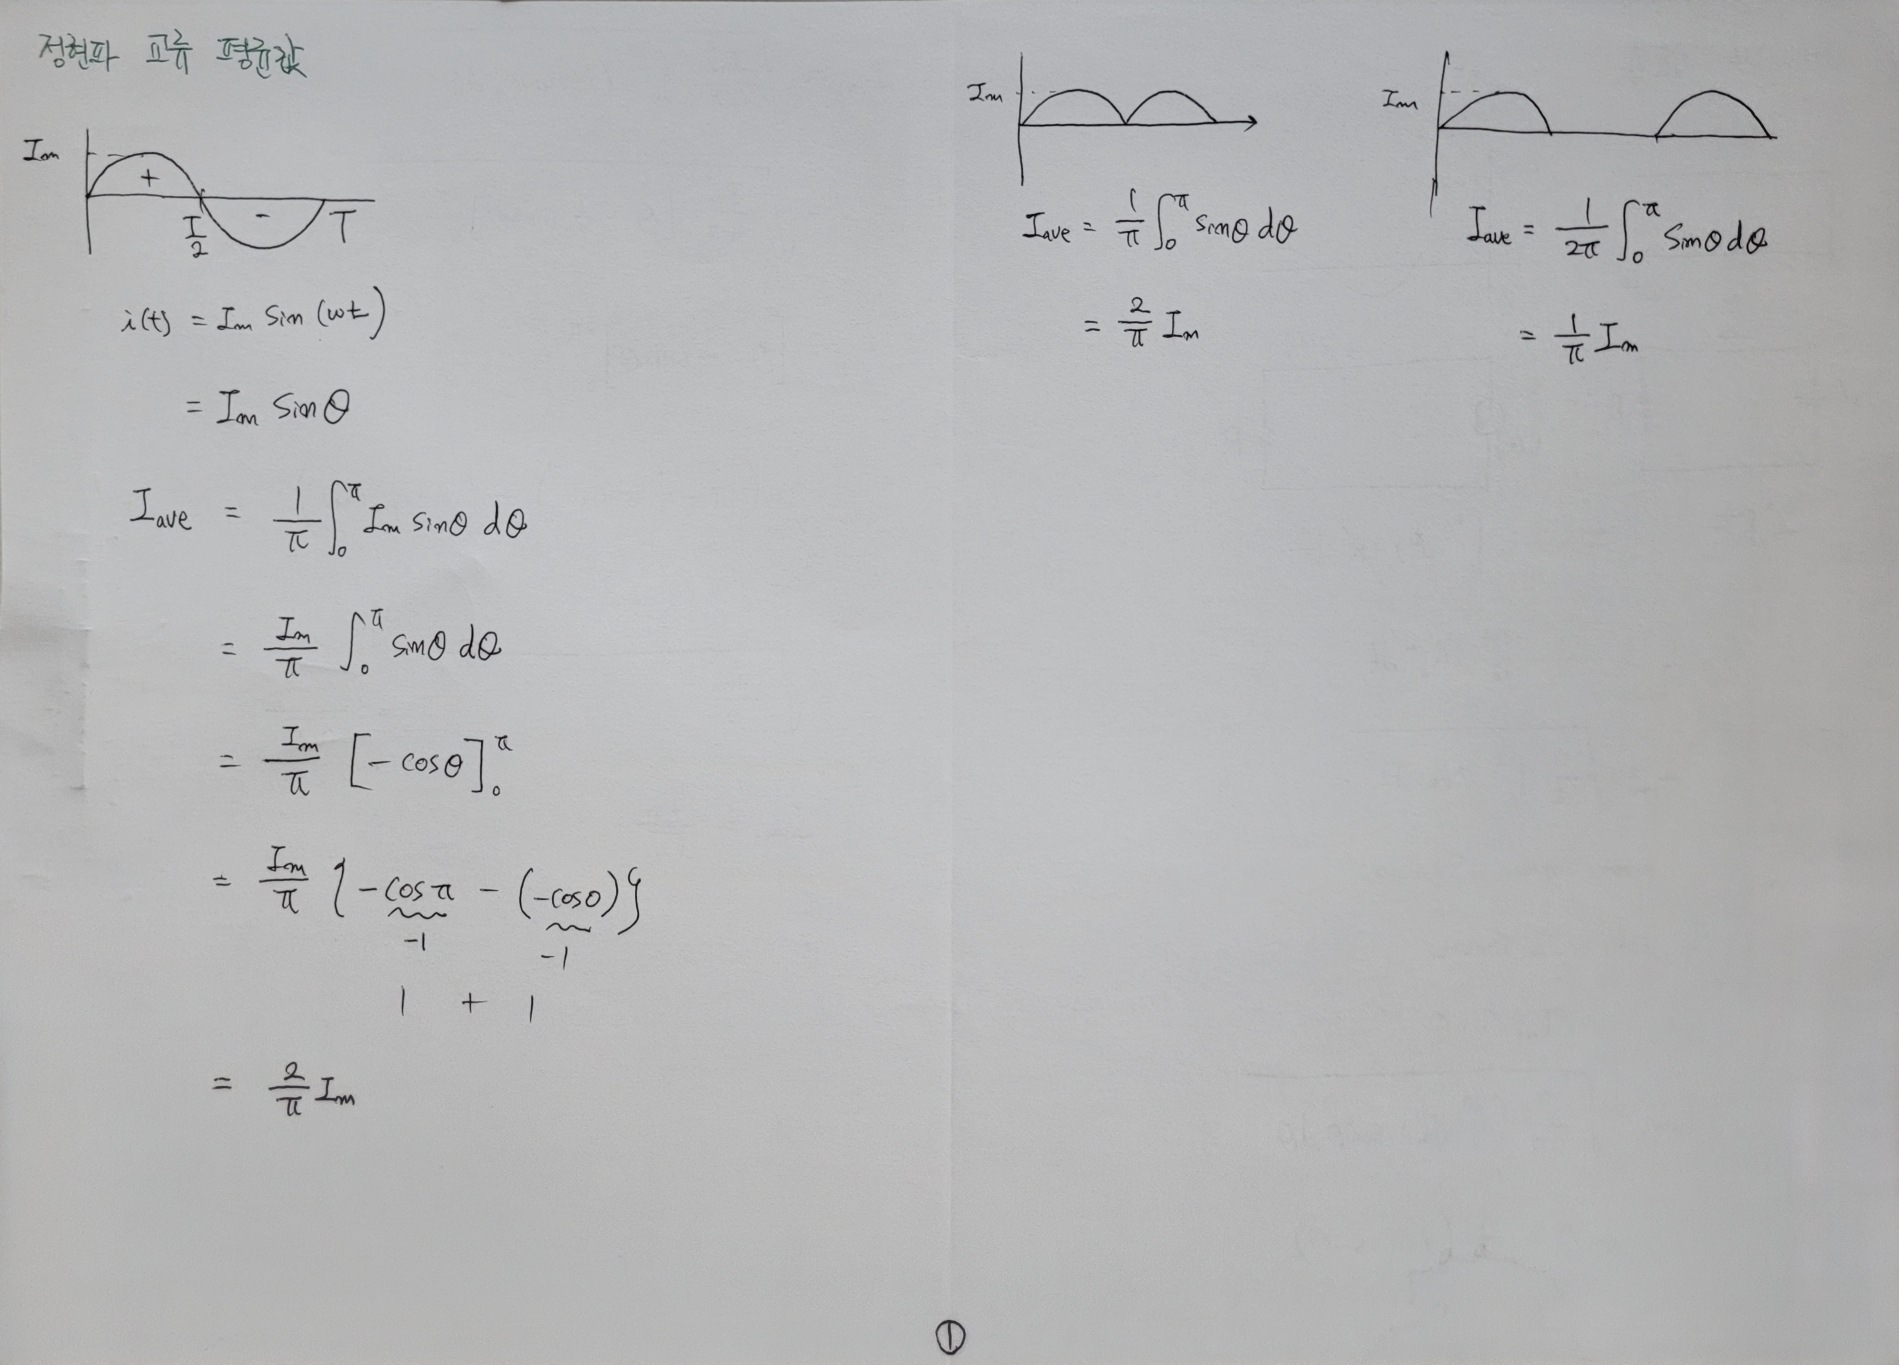 정현파 교류 평균값
Im
+
-
I/2
T
i(t) = Im Sin (ωt)
= Im Sinθ
Iave = 1/π ∫₀^π Im sinθ dθ
= Im/π ∫₀^π sinθ dθ
= Im/π [-cosθ]₀^π
= Im/π {-cosπ - (-cos0)}
-1 -1
1 + 1
= 2/π Im
Im
Iave = 1/π ∫₀^π sinθ dθ
= 2/π Im
Im
Iave = 1/2π ∫₀^π sinθ dθ
= 1/π Im
①